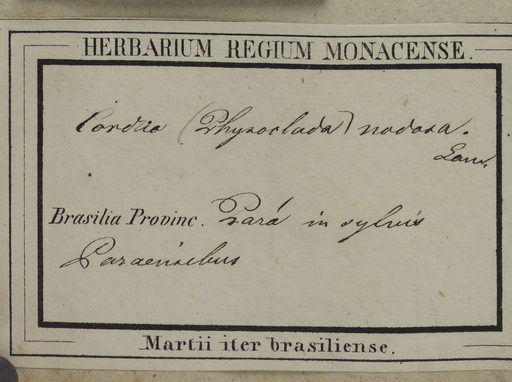 HERBARIUM REGIUM MONACENSE.
Cordia (Physoclada) nodosa.
Lam.
Brasilia Provinc. Pará in sylvis
Paraensibus
Martii iter brasiliense.